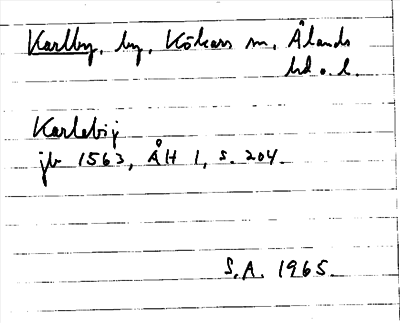 Karlby, by, Kökars sn, Ålands
hd o. l.
Karlebij
jb 1563, ÅH 1, s. 204.
S.A. 1965.